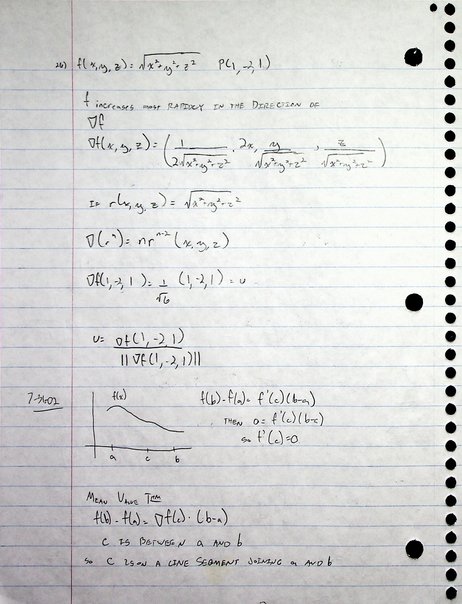 26) f(x,y,z) = √x²+y²+z² P(1,-2,1)
f increases most RAPIDLY IN THE DIRECTION OF
∇f
∇f(x,y,z) = (1/2√x²+y²+z² · 2x, y/√x²+y²+z², z/√x²+y²+z²)
IF r(x,y,z) = √x²+y²+z²
∇(rⁿ) = nrⁿ⁻²(x,y,z)
∇f(1,-2,1) = 1/√6 (1,-2,1) = u
u = ∇f(1,-2,1)/||∇f(1,-2,1)||
7-31-02
f(x)
a c b
f(b)-f(a) = f'(c)(b-a)
THEN 0 = f'(c)(b-a)
so f'(c)=0
MEAN VALUE THM
f(b)-f(a) = ∇f(c)·(b-a)
C IS BETWEEN a AND b
so C IS ON A LINE SEGMENT JOINING a AND b